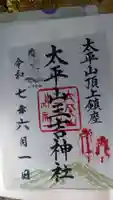 太平山頂上鎮座
太平山三吉神社
令和七年六月一日